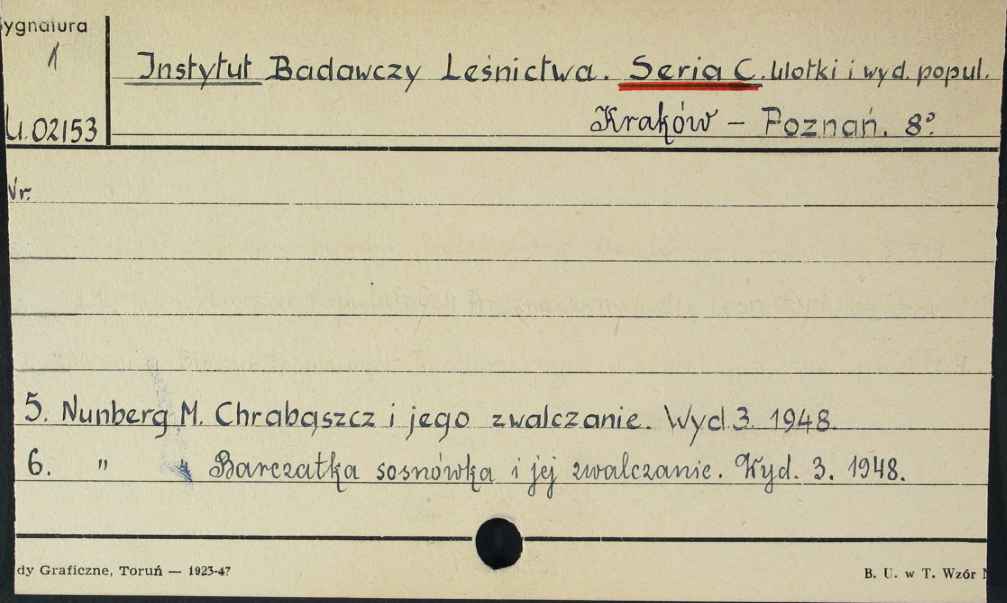 Sygnatura
1
U.02153
Instytut Badawczy Leśnictwa. Seria C. Ulotki i wyd. popul.
Kraków – Poznań. 8°.
Nr.
5. Nunberg M. Chrabąszcz i jego zwalczanie. Wyd 3. 1948.
6. " " Barczatka sosnówka i jej zwalczanie. Wyd. 3. 1948.
dy Graficzne, Toruń — 1923-47
B. U. w T. Wzór